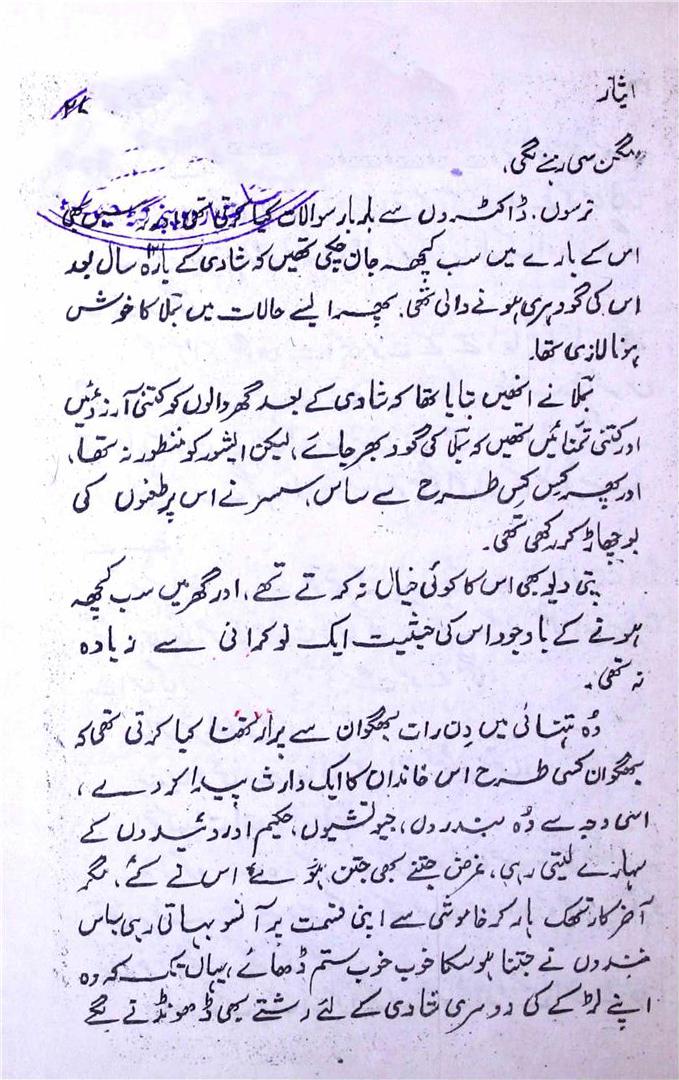 ایثار
۲۸
مگن سی رہنے لگی،
نرسوں، ڈاکٹروں سے بار بار سوالات کیا کرتی تھی،
اس کے بارے میں سب کچھ جان چکی تھیں کہ شادی کے بارہ سال بعد
اس کی گود ہری ہونے والی تھی۔ پھر ایسے حالات میں بملا کا خوش
ہونا لازمی تھا۔
بملا نے انھیں بتایا تھا کہ شادی کے بعد گھر والوں کو کتنی آرزوئیں
اور کتنی تمنائیں تھیں کہ بملا کی گود بھر جائے، لیکن ایشور کو منظور نہ تھا،
اور پھر کِس کِس طرح سے ساس، سسر نے اس پر طعنوں کی
بوچھاڑ کر رکھی تھی۔
پتی دیو بھی اس کا کوئی خیال نہ کرتے تھے، اور گھر میں سب کچھ
ہونے کے باوجود اس کی حیثیت ایک نوکرانی سے زیادہ
نہ تھی۔
وُہ تنہائی میں دِن رات بھگوان سے پرارتھنا کیا کرتی تھی کہ
بھگوان کسی طرح اس خاندان کا ایک وارث پیدا کر دے،
اسی وجہ سے وُہ مندروں، جیوتشیوں، حکیم اور وئیدوں کے
سہارے لیتی رہی، غرض جتنے بھی جتن ہوئے اس نے کئے، مگر
آخر کار تھک ہار کر خاموشی سے اپنی قسمت پر آنسو بہاتی رہی ساس
نندوں نے جتنا ہو سکا خوب خوب ستم ڈھائے، یہاں تک کہ وہ
اپنے لڑکے کی دوسری شادی کے لئے رشتے بھی ڈھونڈنے لگے